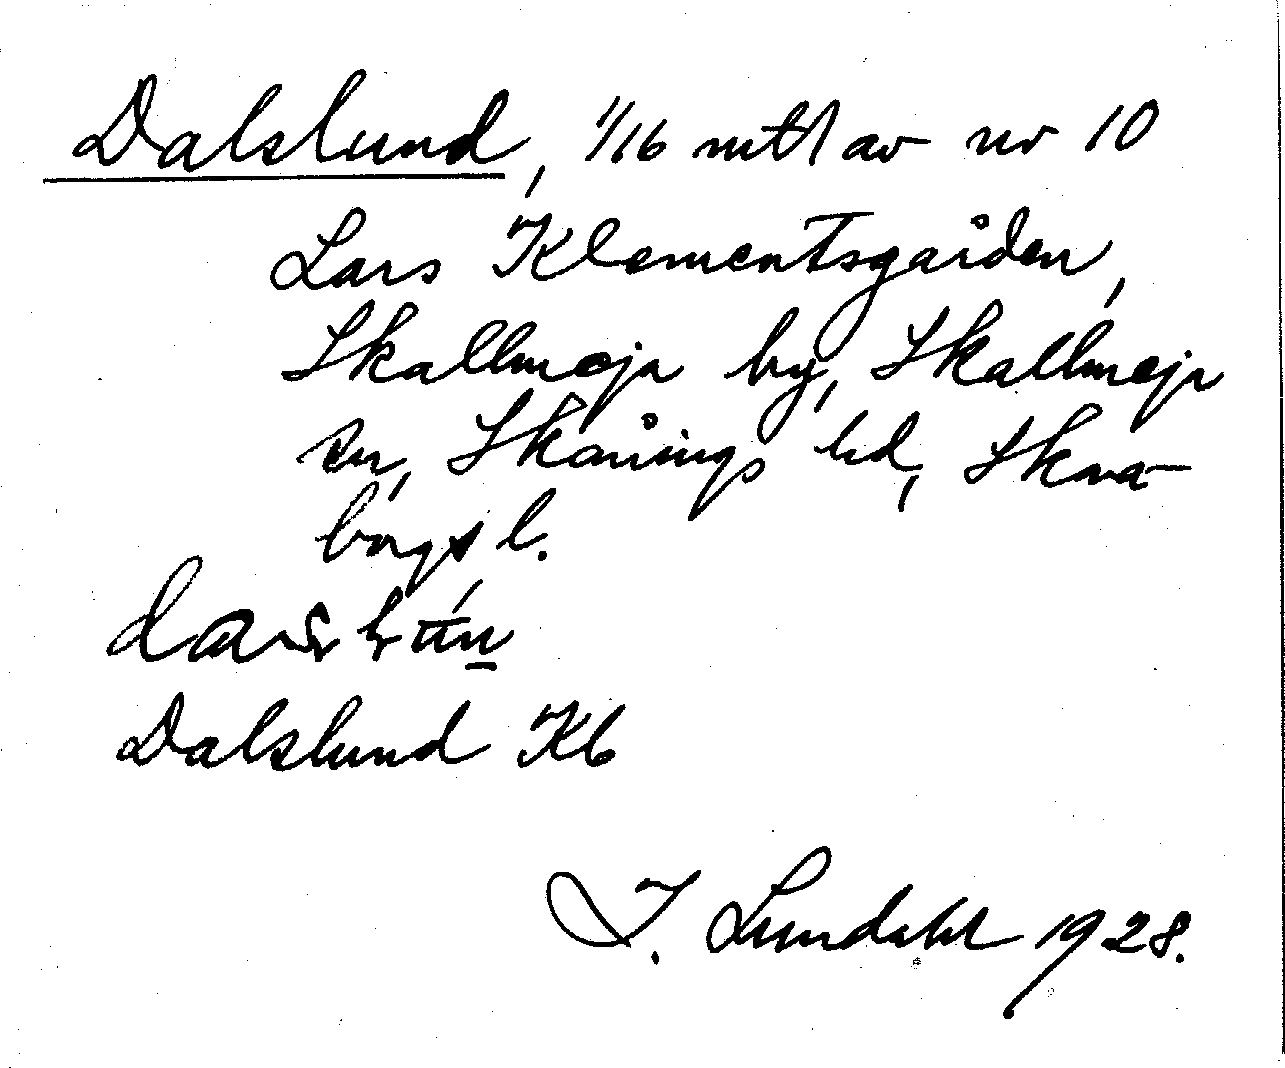 Dalslund, 1/16 mtl av nr 10
Lars Klementsgården,
Skallmeja by, Skallmeja
sn, Skånings hd, Skara-
borgs l.
Dalslund Kb
I. Lundahl 1928.